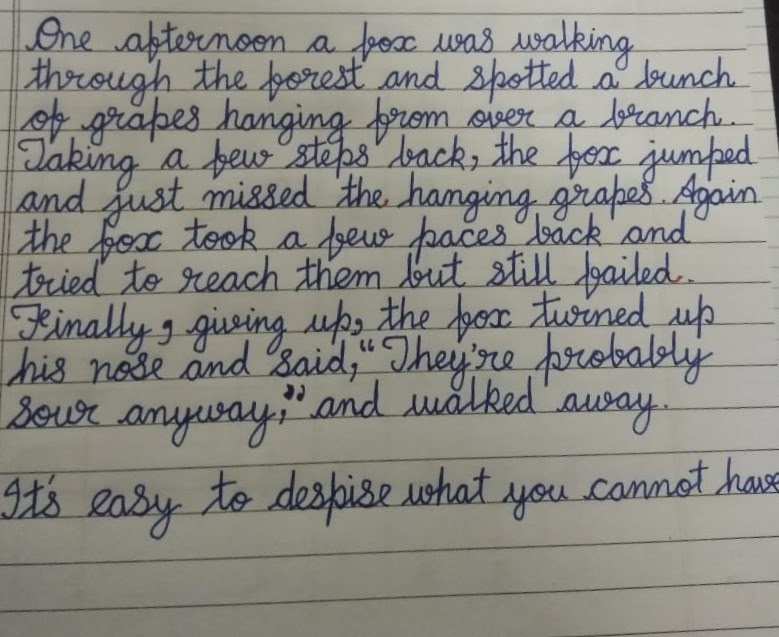 One afternoon a fox was walking
through the forest and spotted a bunch
of grapes hanging from over a branch.
Taking a few steps back, the fox jumped
and just missed the hanging grapes. Again
the fox took a few paces back and
tried to reach them but still failed.
Finally, giving up, the fox turned up
his nose and said, "They're probably
sour anyway," and walked away.
It's easy to despise what you cannot have